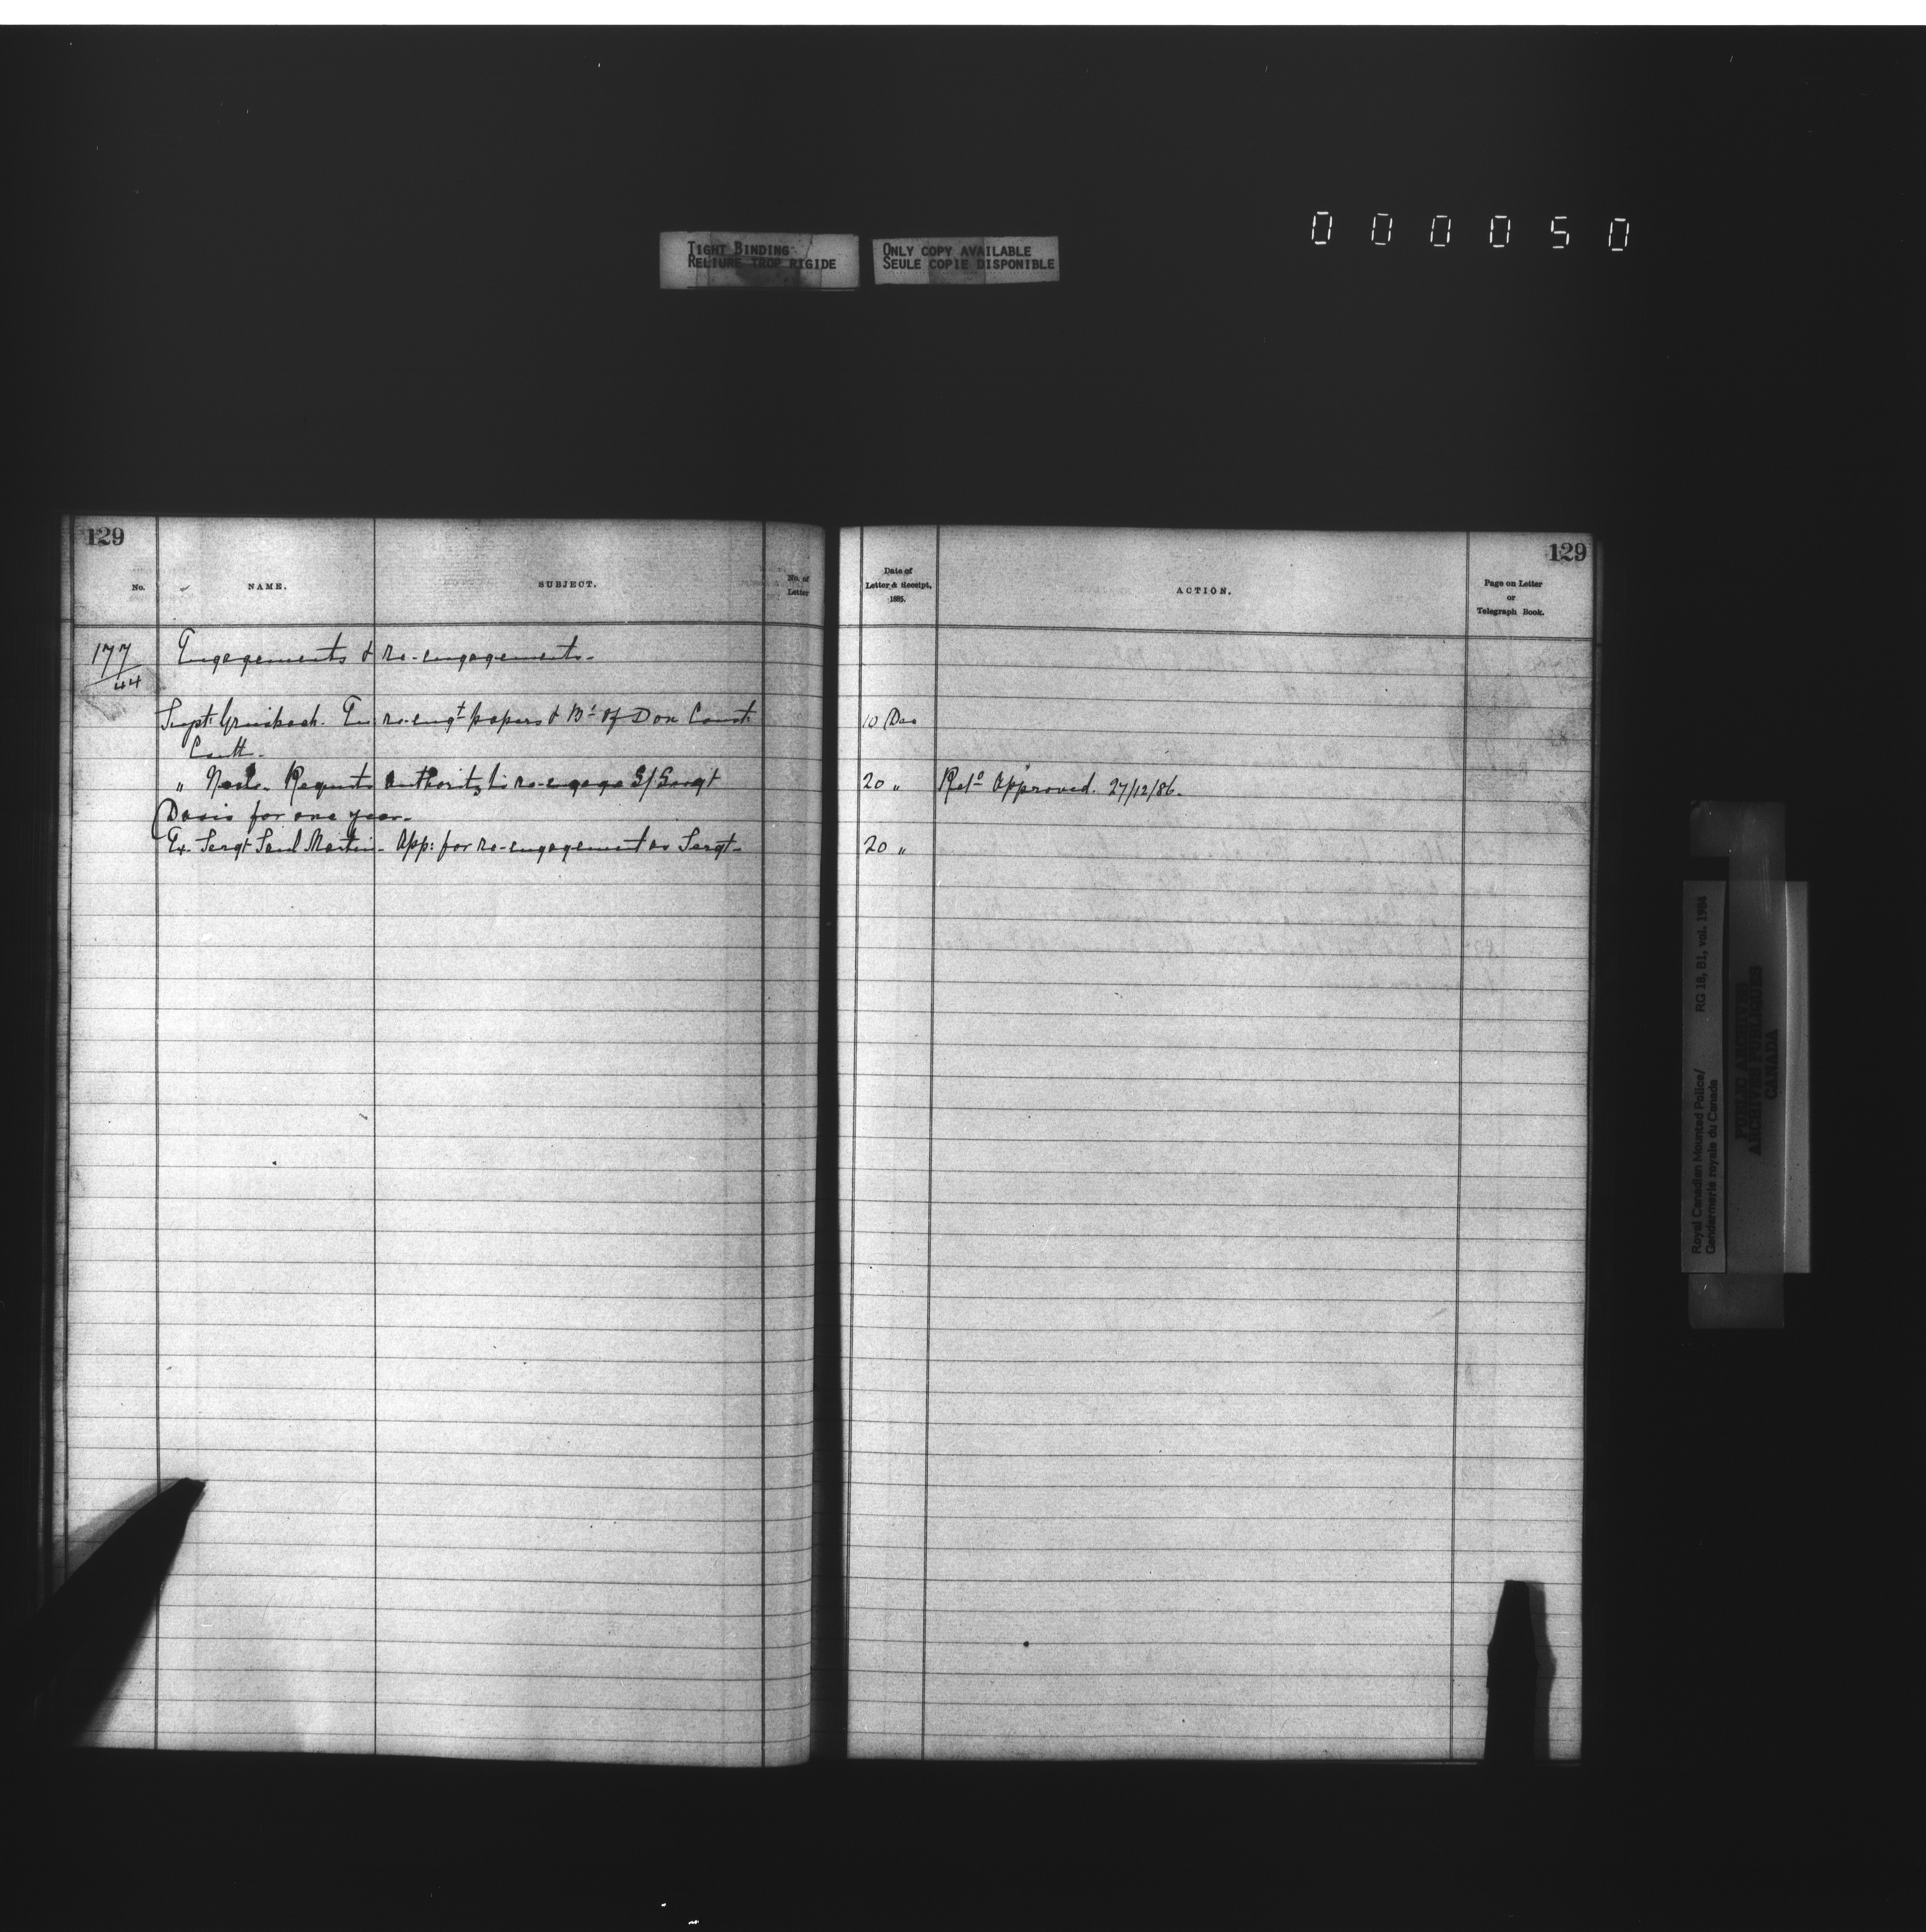 000050
TIGHT BINDING
RELIURE TROP RIGIDE
ONLY COPY AVAILABLE
SEULE COPIE DISPONIBLE
129
No.
NAME.
SUBJECT.
No. of
Letter
177
44
Engagements & re-engagements-
Supt. Griesbach. En re-engt papers & of Don Const
" Neale. Requests authority to re-engage S/Sergt
Davis for one year.
Ex. Sergt Martin- App: for re-engagement as Sergt-
129
Date of
Letter & Receipt,
1885.
ACTION.
Page on Letter
or
Telegraph Book.
10 Dec
20 " Approved. 27/12/86.
20 "
Royal Canadian Mounted Police/ RG 18, B1, vol. 1984
Gendarmerie royale du Canada
PUBLIC ARCHIVES
ARCHIVES PUBLIQUES
CANADA